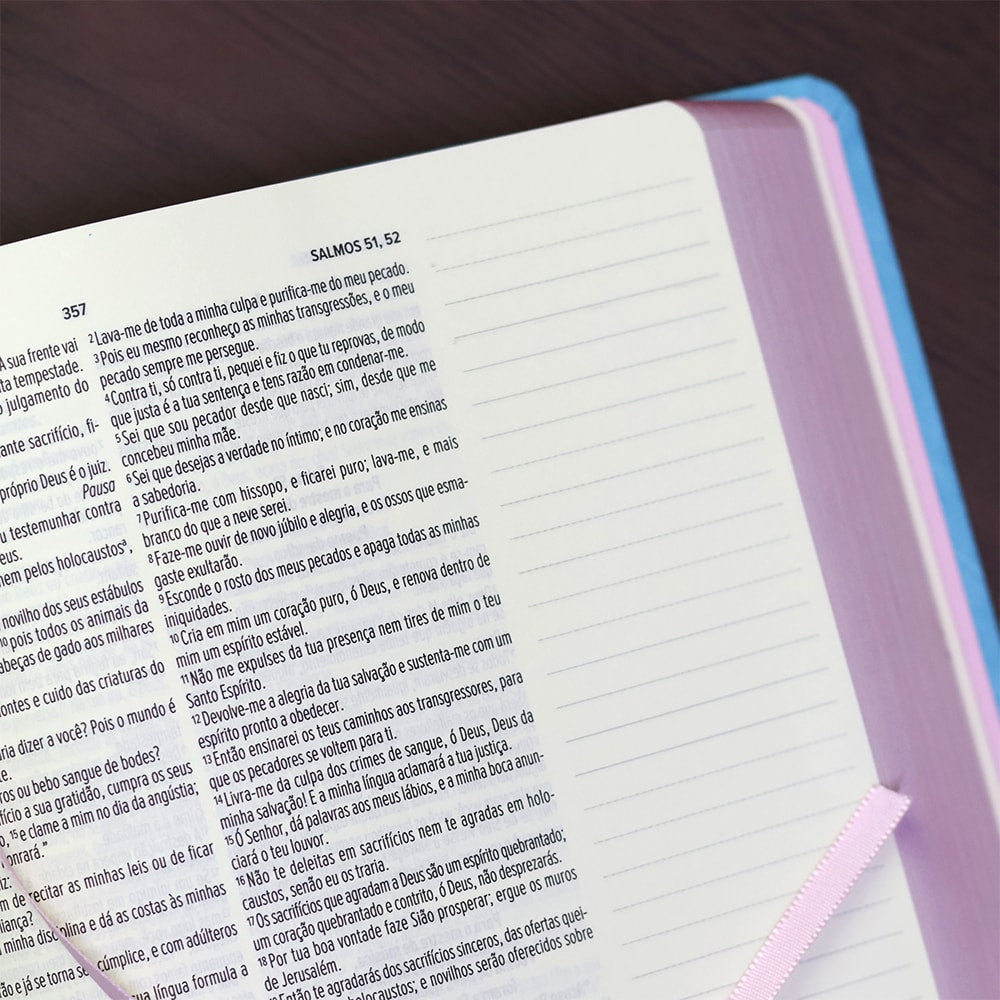 357
SALMOS 51, 52
A sua frente vai
ta tempestade.
o julgamento do
ante sacrifício, fi-
próprio Deus é o juiz.
Pausa
u testemunhar contra
eus.
nem pelos holocaustosª,
novilho dos seus estábulos
¹⁰pois todos os animais da
abeças de gado aos milhares
ontes e cuido das criaturas do
ria dizer a você? Pois o mundo é
te.
ros ou bebo sangue de bodes?
fício a sua gratidão, cumpra os seus
o, ¹⁵e clame a mim no dia da angústia;
onrará."
iz:
m de recitar as minhas leis ou de ficar
liança?
minha disciplina e dá as costas às minhas
ão e já se torna seu cúmplice, e com adúlteros
ua língua formula a
²Lava-me de toda a minha culpa e purifica-me do meu pecado.
³Pois eu mesmo reconheço as minhas transgressões, e o meu
pecado sempre me persegue.
⁴Contra ti, só contra ti, pequei e fiz o que tu reprovas, de modo
que justa é a tua sentença e tens razão em condenar-me.
⁵Sei que sou pecador desde que nasci; sim, desde que me
concebeu minha mãe.
⁶Sei que desejas a verdade no íntimo; e no coração me ensinas
a sabedoria.
⁷Purifica-me com hissopo, e ficarei puro; lava-me, e mais
branco do que a neve serei.
⁸Faze-me ouvir de novo júbilo e alegria, e os ossos que esma-
gaste exultarão.
⁹Esconde o rosto dos meus pecados e apaga todas as minhas
iniquidades.
¹⁰Cria em mim um coração puro, ó Deus, e renova dentro de
mim um espírito estável.
¹¹Não me expulses da tua presença nem tires de mim o teu
Santo Espírito.
¹²Devolve-me a alegria da tua salvação e sustenta-me com um
espírito pronto a obedecer.
¹³Então ensinarei os teus caminhos aos transgressores, para
que os pecadores se voltem para ti.
¹⁴Livra-me da culpa dos crimes de sangue, ó Deus, Deus da
minha salvação! E a minha língua aclamará a tua justiça.
¹⁵Ó Senhor, dá palavras aos meus lábios, e a minha boca anun-
ciará o teu louvor.
¹⁶Não te deleitas em sacrifícios nem te agradas em holo-
caustos, senão eu os traria.
¹⁷Os sacrifícios que agradam a Deus são um espírito quebrantado;
um coração quebrantado e contrito, ó Deus, não desprezarás.
¹⁸Por tua boa vontade faze Sião prosperar; ergue os muros
de Jerusalém.
¹⁹Então te agradarás dos sacrifícios sinceros, das ofertas quei-
holocaustos; e novilhos serão oferecidos sobre